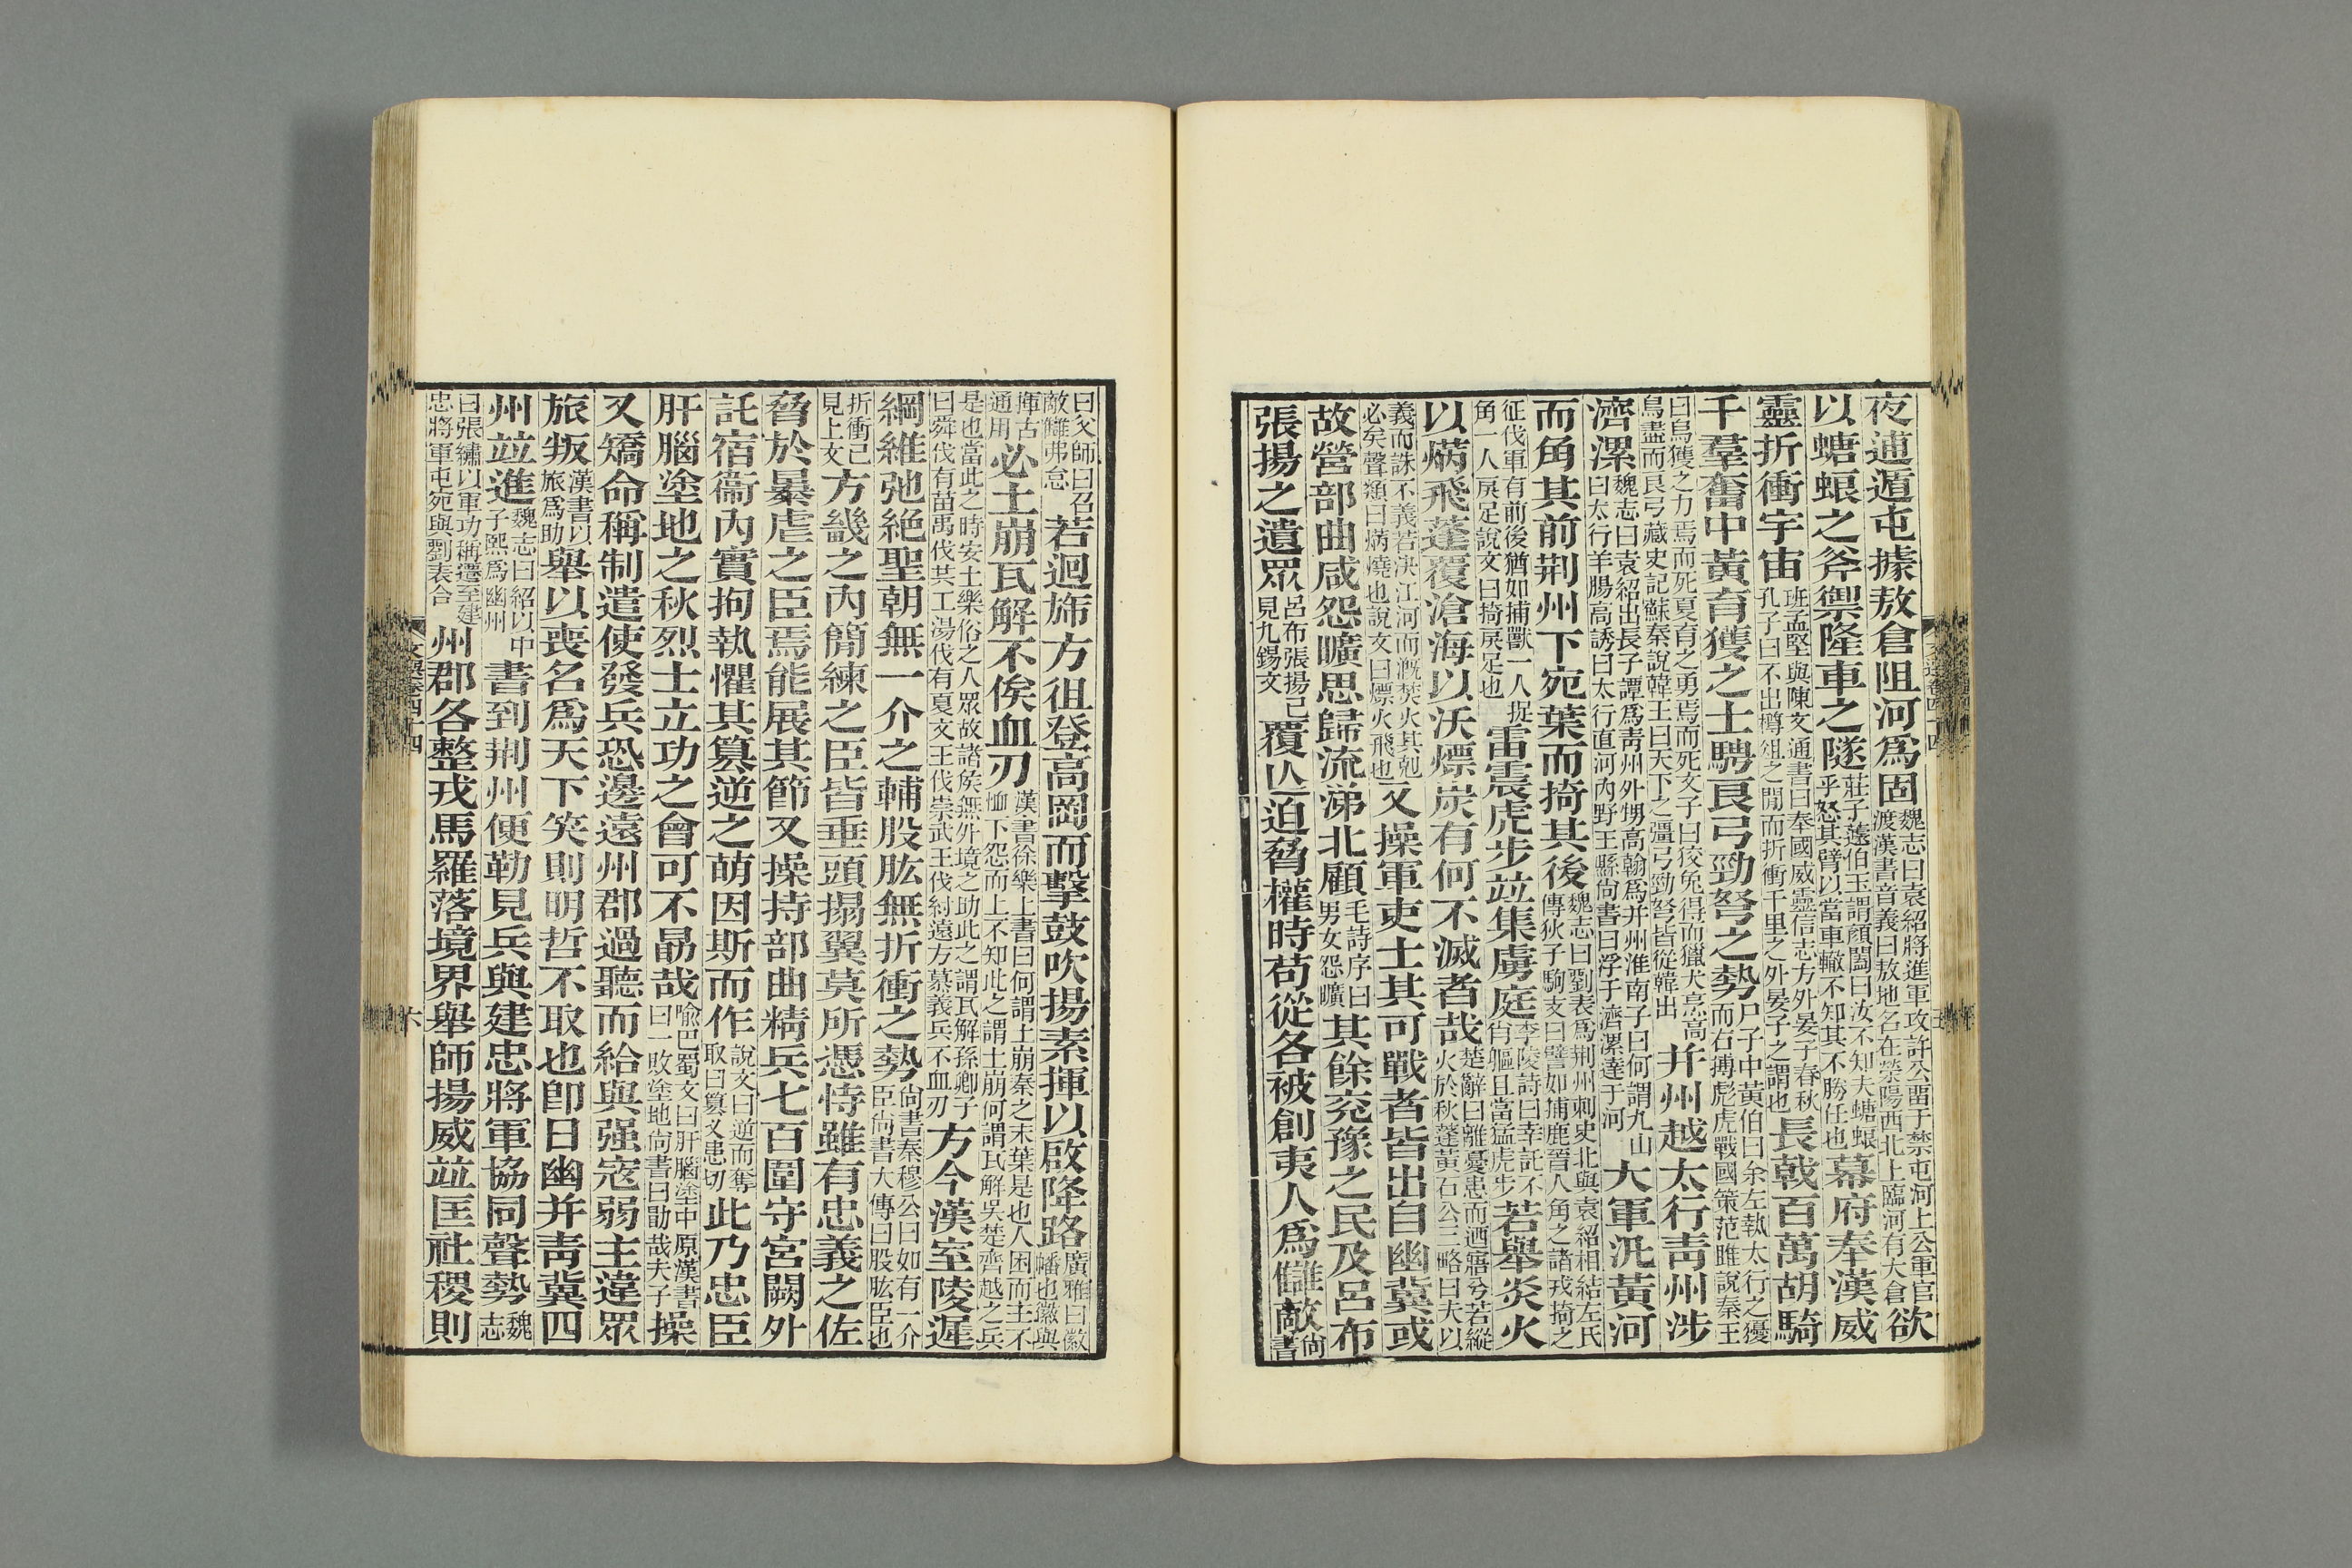 夜逋遁屯據敖倉阻河爲固魏志曰袁紹將進軍攻許公留于禁屯河上公軍官渡漢書音義曰敖地名在滎陽西北上臨河有大倉欲
以螗蜋之斧禦隆車之隧莊子蘧伯玉謂顏闔曰汝不知夫螗蜋乎怒其臂以當車轍不知其不勝任也幕府奉漢威
靈折衝宇宙班孟堅與陳文通書曰奉國威靈信志方外晏子春秋孔子曰不出樽俎之閒而折衝千里之外晏子之謂也長戟百萬胡騎
千羣奮中黃育獲之士騁良弓勁弩之勢尸子中黃伯曰余左執太行之獶而右搏彪虎戰國策范雎說秦王
曰烏獲之力焉而死夏育之勇焉而死文子曰狡兔得而獵犬烹高鳥盡而良弓藏史記蘇秦說韓王曰天下之彊弓勁弩皆從韓出并州越太行青州涉
濟漯魏志曰袁紹出長子譚爲青州外甥高翰爲并州淮南子曰何謂九山曰太行羊腸高誘曰太行直河內野王縣尙書曰浮于濟漯達于河大軍汎黃河
而角其前荆州下宛葉而掎其後魏志曰劉表爲荆州刺史北與袁紹相結左氏傳狄子駒支曰譬如捕鹿晉人角之諸戎掎之
征伐軍有前後猶如捕獸一人捉角一人戾足說文曰掎戾足也雷震虎步竝集虜庭李陵詩曰幸託不肖軀且當猛虎步若舉炎火
以焫飛蓬覆滄海以沃熛炭有何不滅者哉楚辭曰離憂患而迺寤兮若縱火於秋蓬黃石公三略曰夫以
義而誅不義若決江河而漑焚火其剋必矣聲類曰焫燒也說文曰熛火飛也又操軍吏士其可戰者皆出自幽冀或
故營部曲咸怨曠思歸流涕北顧毛詩序曰男女怨曠其餘兖豫之民及呂布
張揚之遺眾呂布張揚已見九錫文覆亾迫脅權時苟從各被創夷人爲讎敵尙書
曰父師曰召敵讎弗怠若迴旆方徂登高岡而擊鼓吹揚素揮以啟降路廣雅曰徽幡也徽與
揮古通用必土崩瓦解不俟血刃漢書徐樂上書曰何謂土崩秦之末葉是也人困而主不恤下怨而上不知此之謂土崩何謂瓦解吳楚齊越之兵
是也當此之時安土樂俗之人眾故諸矦無外境之助此之謂瓦解孫卿子曰舜伐有苗禹伐共工湯伐有夏文王伐崇武王伐紂遠方慕義兵不血刃方今漢室陵遲
綱維弛絕聖朝無一介之輔股肱無折衝之勢尙書秦穆公曰如有一介臣尙書大傳曰股肱臣也
折衝已見上文方畿之內簡練之臣皆垂頭搨翼莫所憑恃雖有忠義之佐
脅於㬥虐之臣焉能展其節又操持部曲精兵七百圍守宮闕外
託宿衞內實拘執懼其篡逆之萌因斯而作說文曰逆而奪取曰篡叉患切此乃忠臣
肝腦塗地之秋烈士立功之會可不勗哉喻巴蜀文曰肝腦塗中原漢書曰一敗塗地尙書曰勖哉夫子操
又矯命稱制遣使發兵恐邊遠州郡過聽而給與强寇弱主違眾
旅叛漢書以旅爲助舉以喪名爲天下笑則明哲不取也卽日幽并青冀四
州竝進魏志曰紹以中子熙爲幽州書到荆州便勒見兵與建忠將軍協同聲勢魏志
曰張繡以軍功稱遷至建忠將軍屯宛與劉表合州郡各整戎馬羅落境界舉師揚威竝匡社稷則
文選卷四十四
六